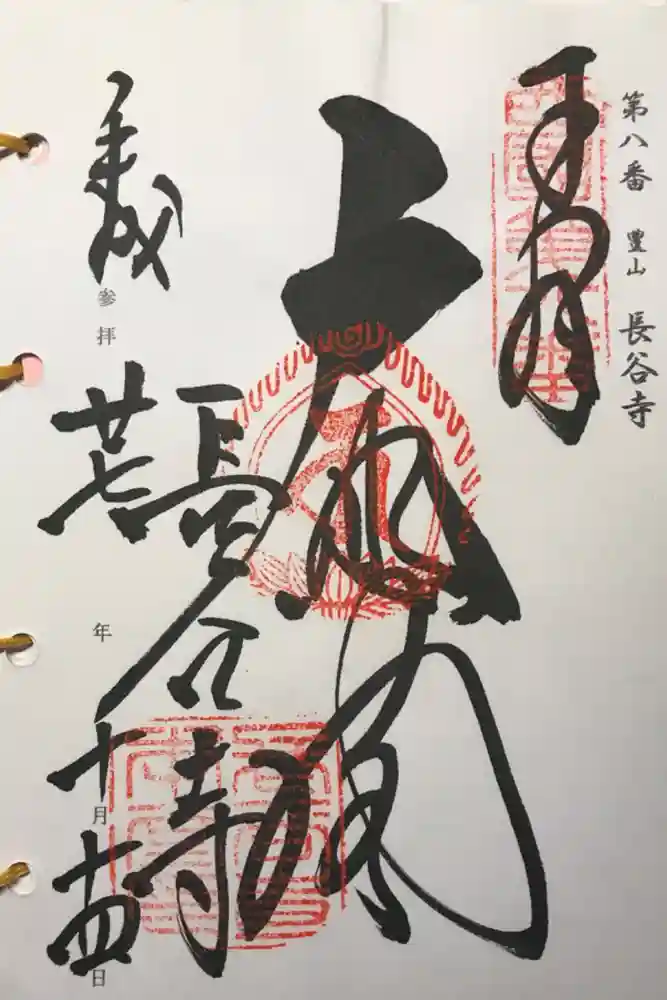 第八番 豊山 長谷寺
奉拝
大悲閣
長谷寺
平成参拝廿七年十月十四日